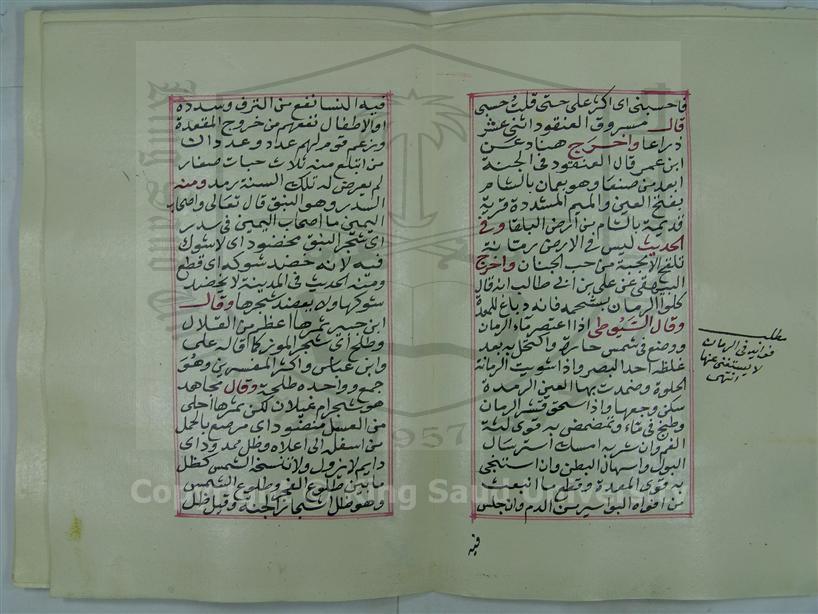 فاحسبنى اى اكثر على حتى قلت وحسبى
قال مسروق العنقود اثنى عشر
ذراعا واخرج هناد عن
ابن عمر قال العنقود فى الجنة
ابعد من صنعا وهو بعمان بالشام
بفتح العين والميم المشددة قرية
قديمة بالشام من ارض البلقا وفى
الحديث ليس فى الارض رمانة
تلقح الا بحبة من حب الجنان واخرج
البيهقى عن على بن ابى طالب انه قال
كلوا الرمان بشحمه فانه دباغ للمعدة
وقال السيوطى اذا اعتصر ماء الرمان
ووضع فى شمس حارة واكتحل به بعد
غلظه احد البصر واذا شويت الرمانة
الحلوة وضمدت بها العين الرمدة
سكن وجعها واذا سحق قشر الرمان
وطبخ فى ماء وتمضمض به قوى لثة
الفم وان شربه امسك استرسال
البول واسهال البطن وان استنجى
به قوى المعدة وقطع ما انبعث
من افواه البواسير من الدم وان جلس
فيه
مطلب
فوائد فى الرمان
لا يستغنى عنها
انتهى
فيه النسا نفع من النزف وسدده
او الاطفال نفعهم من خروج المقعدة
وزعم قوم لهم عدد وعدد ان
من ابتلع منه ثلاث حبات صغار
لم يعرض له تلك السنة رمد ومنه
السدر وهو النبق قال تعالى واصحاب
اليمين ما اصحاب اليمين فى سدر
اى شجر النبق مخضود اى لا شوك
فيه لانه خضد شوكه اى قطع
ومنه الحديث فى المدينة لا يخضد
شوكها ولا يعضد شجرها وقال
ابن جبير ثمرها اعظم من القلال
وطلح اى شجر الموز كما قاله على
وابن عباس واكثر المفسرين وهو
جمع وواحده طلحة وقال مجاهد
هو شجر ام غيلان لكن ثمرها احلى
من العسل منضود اى مرصع بالحمل
من اسفله الى اعلاه وظل ممدود اى
دايم لا يزول ولا تنسخه الشمس كظل
ما بين طلوع الفجر وطلوع الشمس
وهو ظل اشجار الجنة وقيل ظل
1957
Copyright © King Saud University